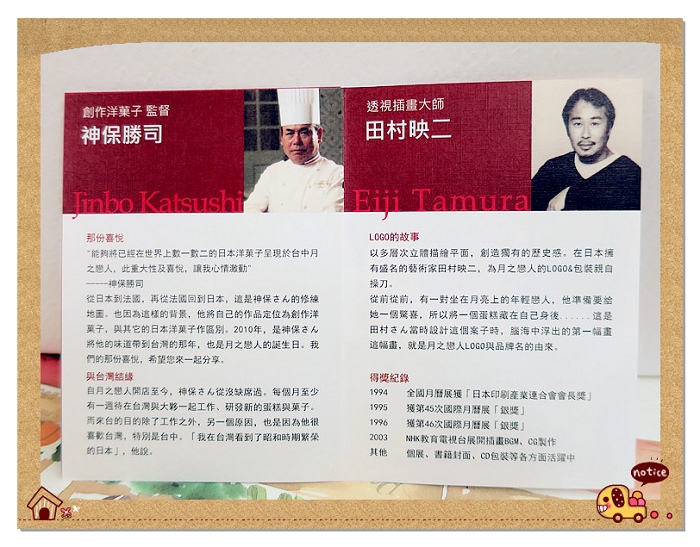 創作洋菓子 監督
神保勝司
Jinbo Katsushi
那份喜悅
"能夠將已經在世界上數一數二的日本洋菓子呈現於台中月
之戀人，此重大性及喜悅，讓我心情激動"
-----神保勝司
從日本到法國，再從法國回到日本，這是神保さん的修練
地圖。也因為這樣的背景，他將自己的作品定位為創作洋
菓子，與其它的日本洋菓子作區別。2010年，是神保さん
將他的味道帶到台灣的那年，也是月之戀人的誕生日。我
們的那份喜悅，希望您來一起分享。
與台灣結緣
自月之戀人開店至今，神保さん從沒缺席過。每個月至少
有一週待在台灣與大夥一起工作、研發新的蛋糕與菓子。
而來台的目的除了工作之外，另一個原因，也是因為他很
喜歡台灣，特別是台中。「我在台灣看到了昭和時期繁榮
的日本」，他說。
透視插畫大師
田村映二
Eiji Tamura
LOGO的故事
以多層次立體描繪平面，創造獨有的歷史感。在日本擁
有盛名的藝術家田村映二，為月之戀人的LOGO&包裝親自
操刀。
從前從前，有一對坐在月亮上的年輕戀人，他準備要給
她一個驚喜，所以將一個蛋糕藏在自己身後......這是
田村さん當時設計這個案子時，腦海中浮出的第一幅畫
這幅畫，就是月之戀人LOGO與品牌名的由來。
得獎紀錄
1994 全國月曆展獲「日本印刷產業連合會會長獎」
1995 獲第45次國際月曆展「銀獎」
1996 獲第46次國際月曆展「銀獎」
2003 NHK教育電視台展開插畫BGM、CG製作
其他 個展、書籍封面、CD包裝等各方面活躍中
notice